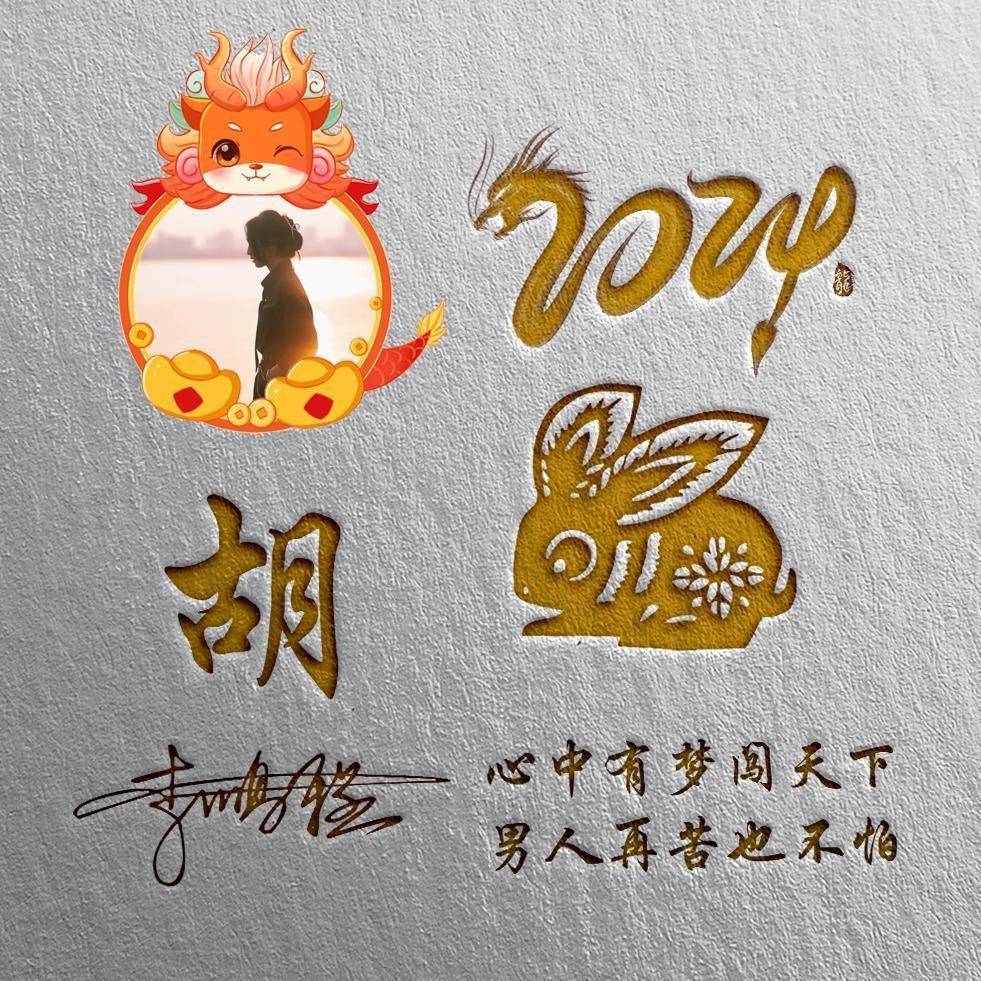 2024
龍
胡
心中有梦闯天下
男人再苦也不怕